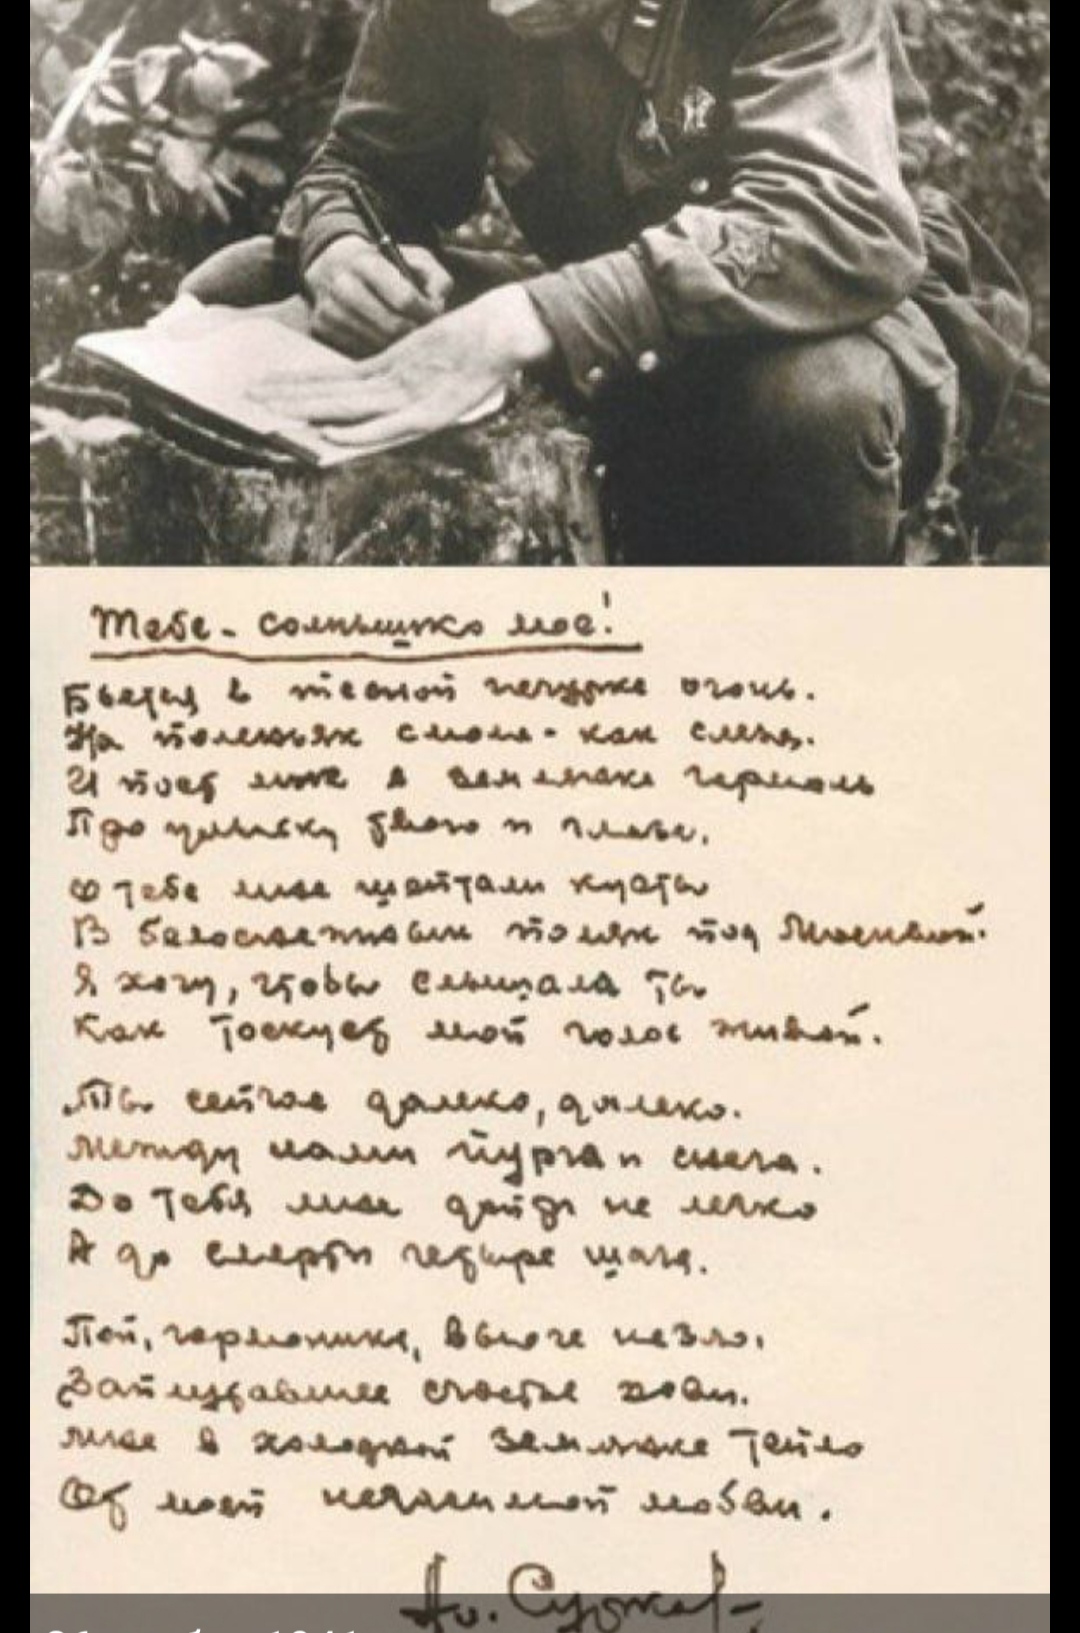 Тебе - солнышко мое!
Бьется в тесной печурке огонь.
На поленьях смола - как слеза.
И поет мне в землянке гармонь
Про улыбку твою и глаза.
О тебе мне шептали кусты
В белоснежных полях под Москвой.
Я хочу, чтобы слышала ты
Как тоскует мой голос живой.
Ты сейчас далеко, далеко.
Между нами пурга и снега.
До тебя мне дойти не легко
А до смерти четыре шага.
Пой, гармоника, вьюге назло.
Заплутавшее счастье зови.
Мне в холодной землянке тепло
От моей негасимой любви.
Ал. Сурков
1941